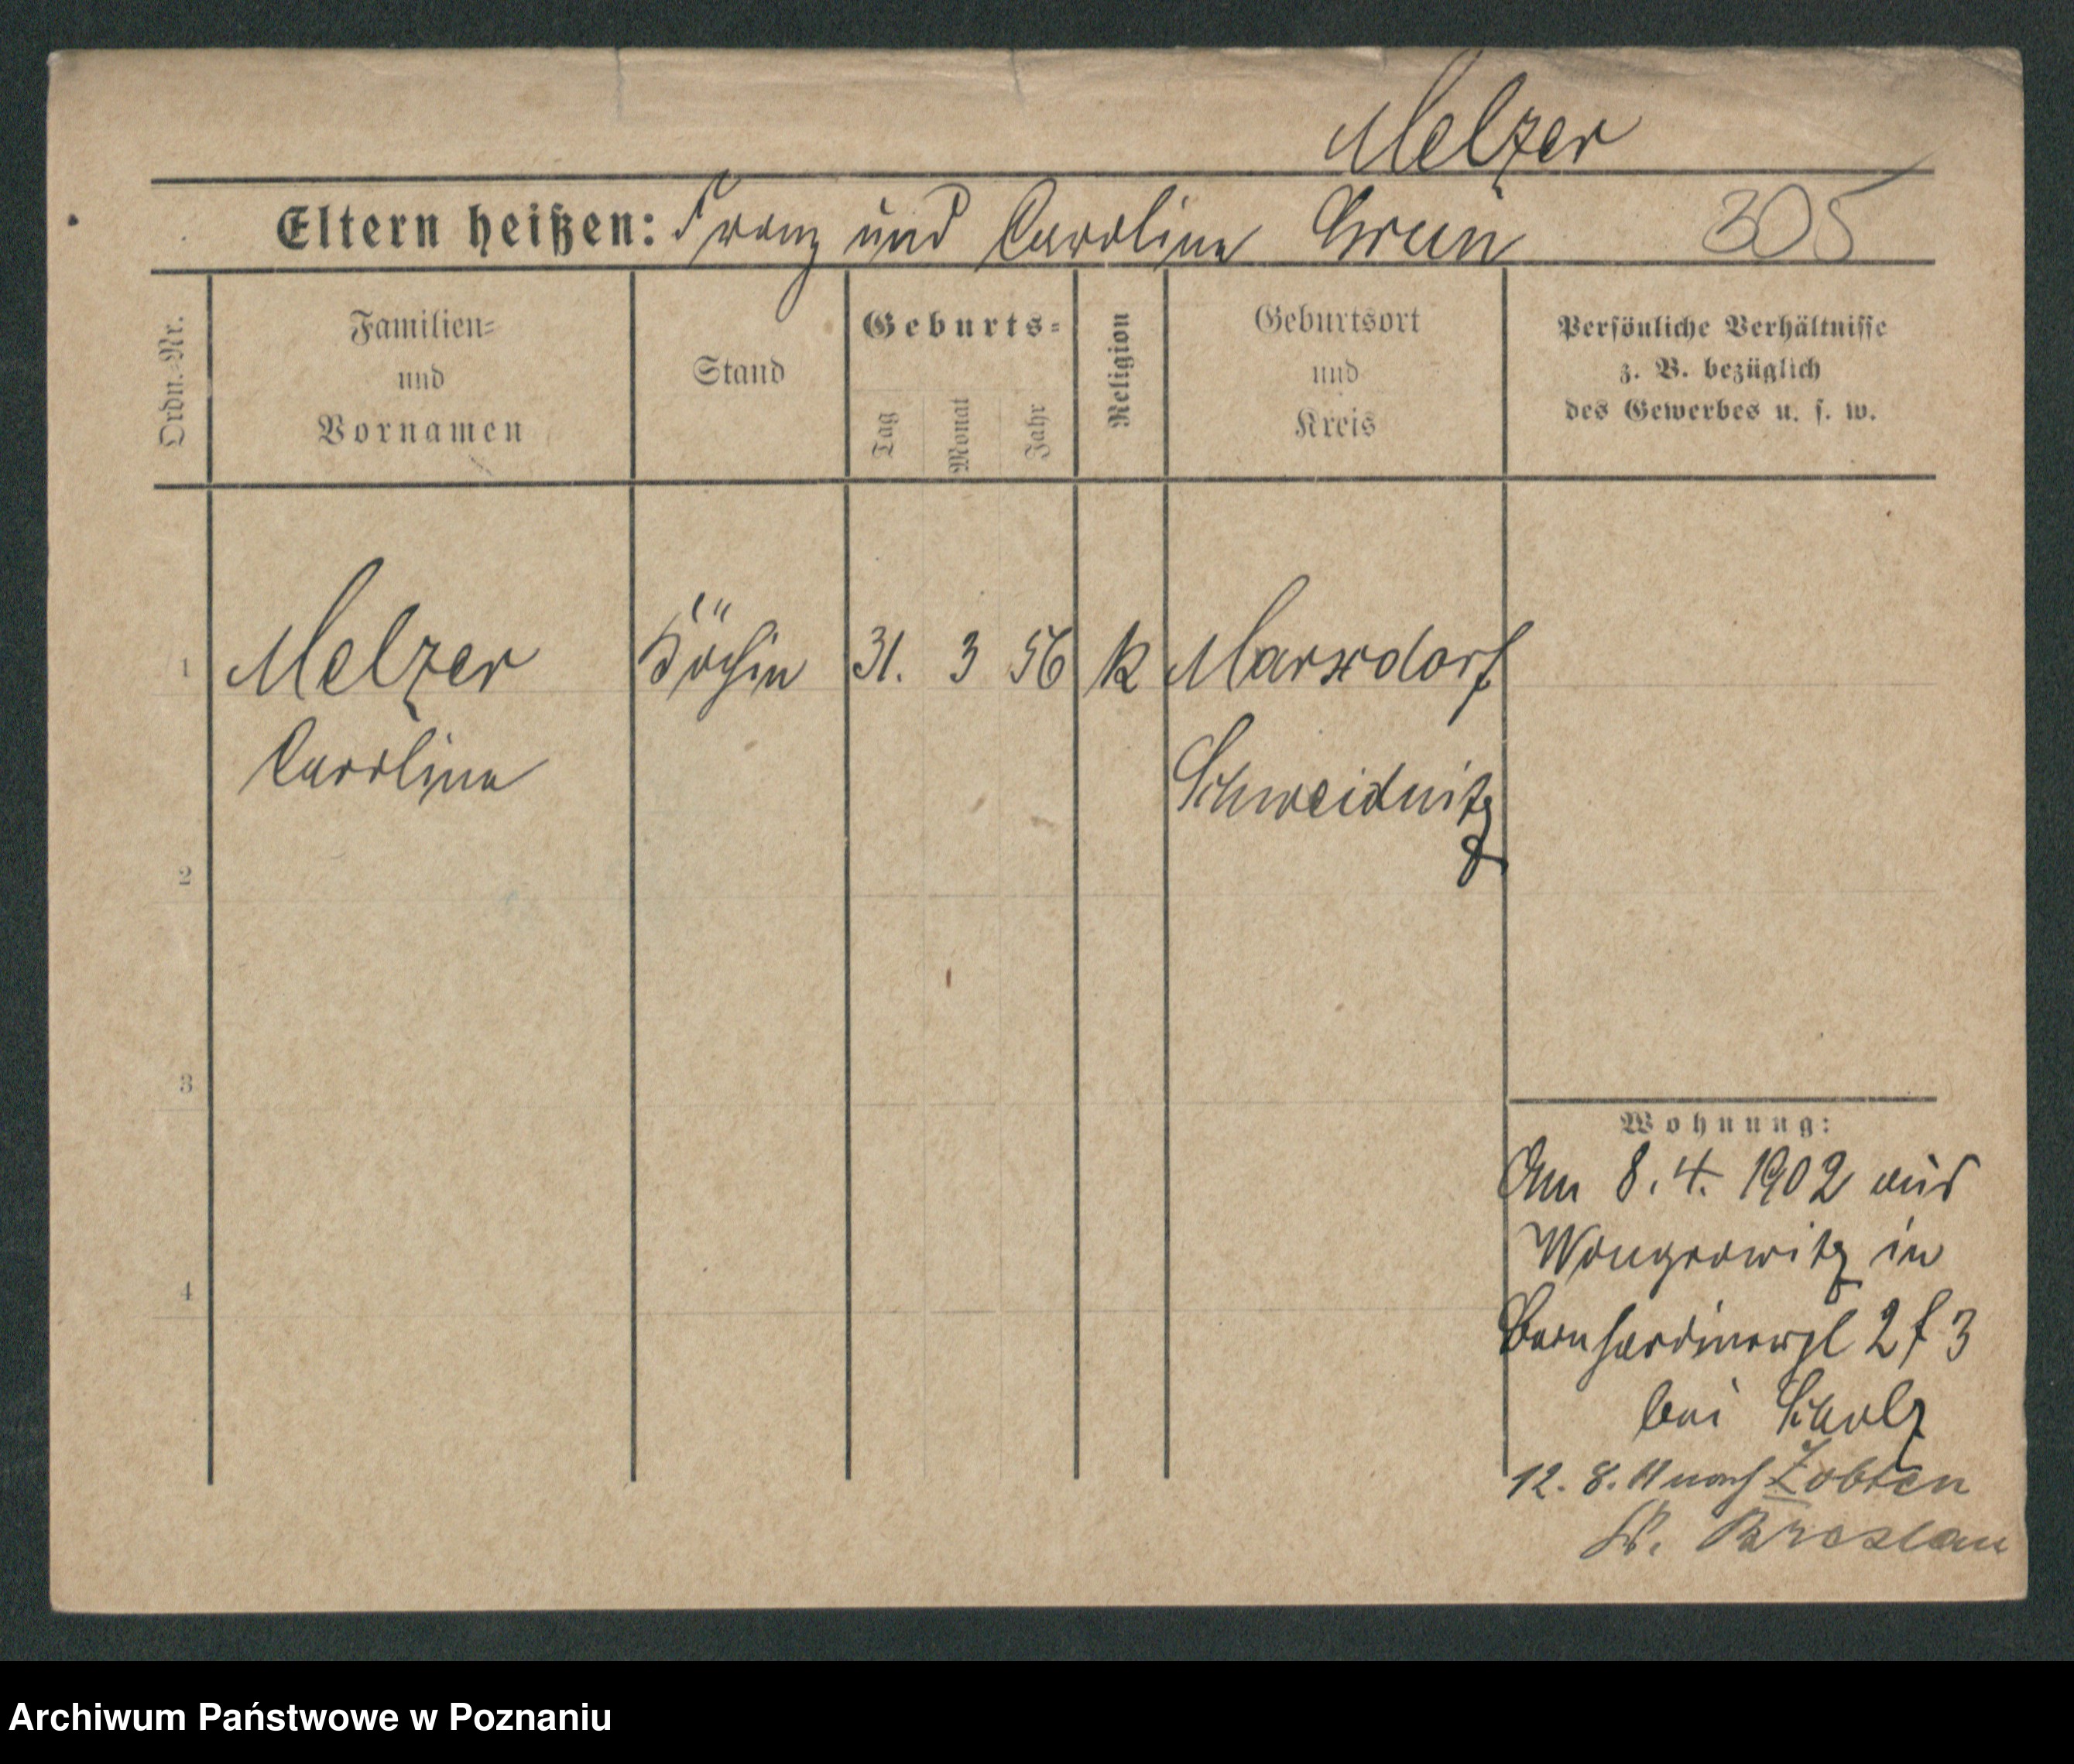 Melzer
Eltern heißen: Franz und Caroline Grün 305
Ordn.-Nr.
Familien-
und
Vornamen
Stand
Geburts-
Tag
Monat
Jahr
Religion
Geburtsort
und
Kreis
Persönliche Verhältnisse
z. B. bezüglich
des Gewerbes u. s. w.
1 Melzer Köchin 31. 3 56 k Marxdorf
Caroline Schweidnitz
2
3
4
Wohnung:
Am 8. 4. 1902 aus
Wongrowitz in
Bernhardinerpl 2 f 3
bei Scholz
12. 8. 11 nach Zobten
Kr. Breslau
Archiwum Państwowe w Poznaniu